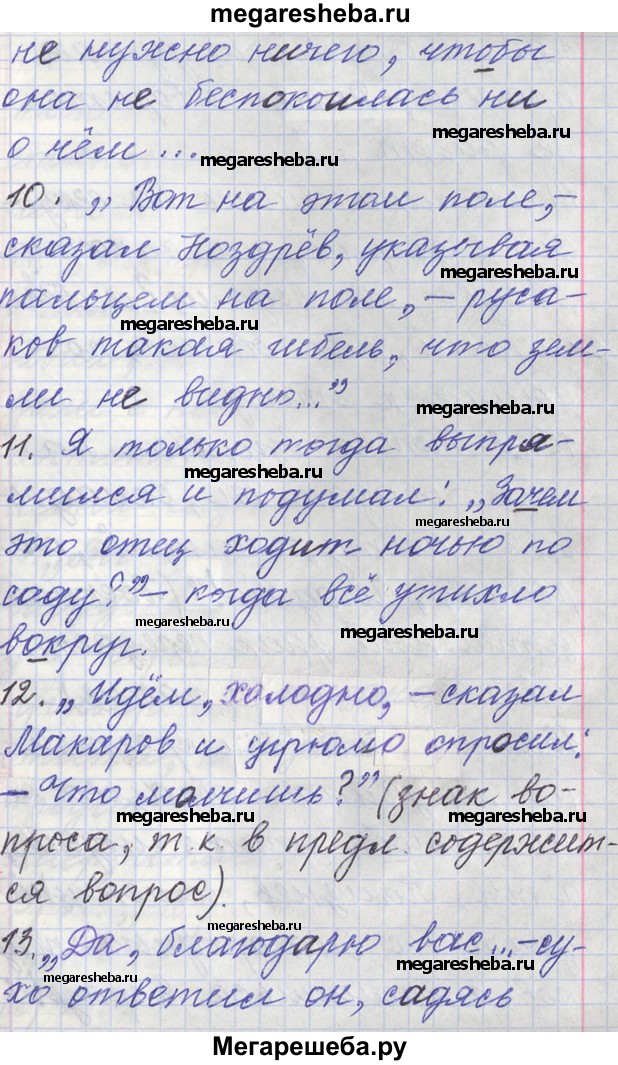 megaresheba.ru
не нужно ничего, чтобы
она не беспокоилась ни
megaresheba.ru
о чём ...
megaresheba.ru
10. „Вот на этом поле,–
сказал Ноздрёв, указывая
megaresheba.ru
пальцем на поле, – руса-
megaresheba.ru
ков такая гибель, что зем-
ли не видно..."
megaresheba.ru
11. Я только тогда выпря-
megaresheba.ru
мился и подумал: „Зачем
megaresheba.ru
это отец ходит ночью по
саду?" – когда всё утихло
megaresheba.ru
megaresheba.ru
вокруг.
12. „Идём, холодно, – сказал
megaresheba.ru
Макаров и угрюмо спросил:
– Что молчишь?" (знак во-
megaresheba.ru
проса, т.к. в предл. содержит-
ся вопрос).
megaresheba.ru
13. „Да, благодарю вас...–су-
megaresheba.ru
хо ответил он, садясь
megaresheba.ru
Мегарешеба.ру